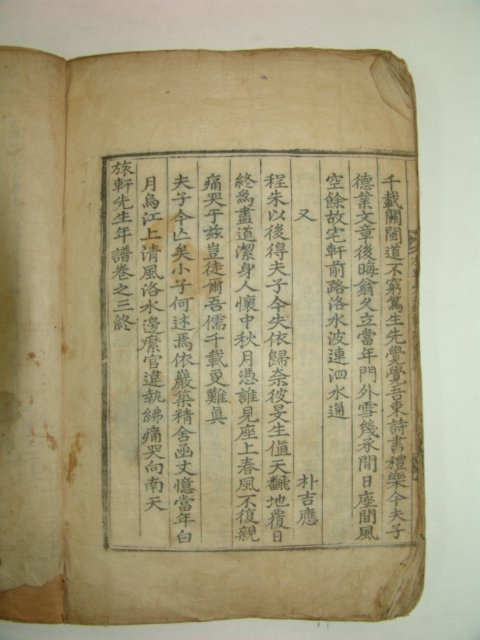 千載關閩道不窮篤生先覺覺吾東詩書禮樂今夫子
德業文章後晦翁久立當年門外雪幾承間日座間風
空餘故宅軒前路洛水波連泗水通
又　　　　　　　　　　朴吉應
程朱以後得夫子今失依歸奈彼旻生値天飜地覆日
終爲盡道潔身人懷中秋月憑誰見座上春風不復親
痛哭于玆豈徒爾吾儒千載更難眞
夫子今亡矣小子何述焉依巖築精舍函丈憶當年白
月烏江上淸風洛水邊縻官違執紼痛哭向南天
旅軒先生年譜卷之三終